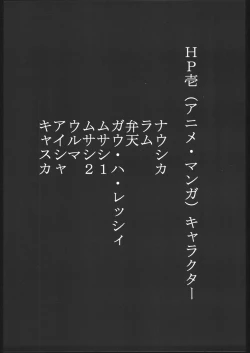 HP壱（アニメ・マンガ）キャラクター
ナウシカ
ラム
弁天
ガウ・ハ・レッシィ
ムサシ1
ムサシ2
ウルマ
アイシャ
キャスカ